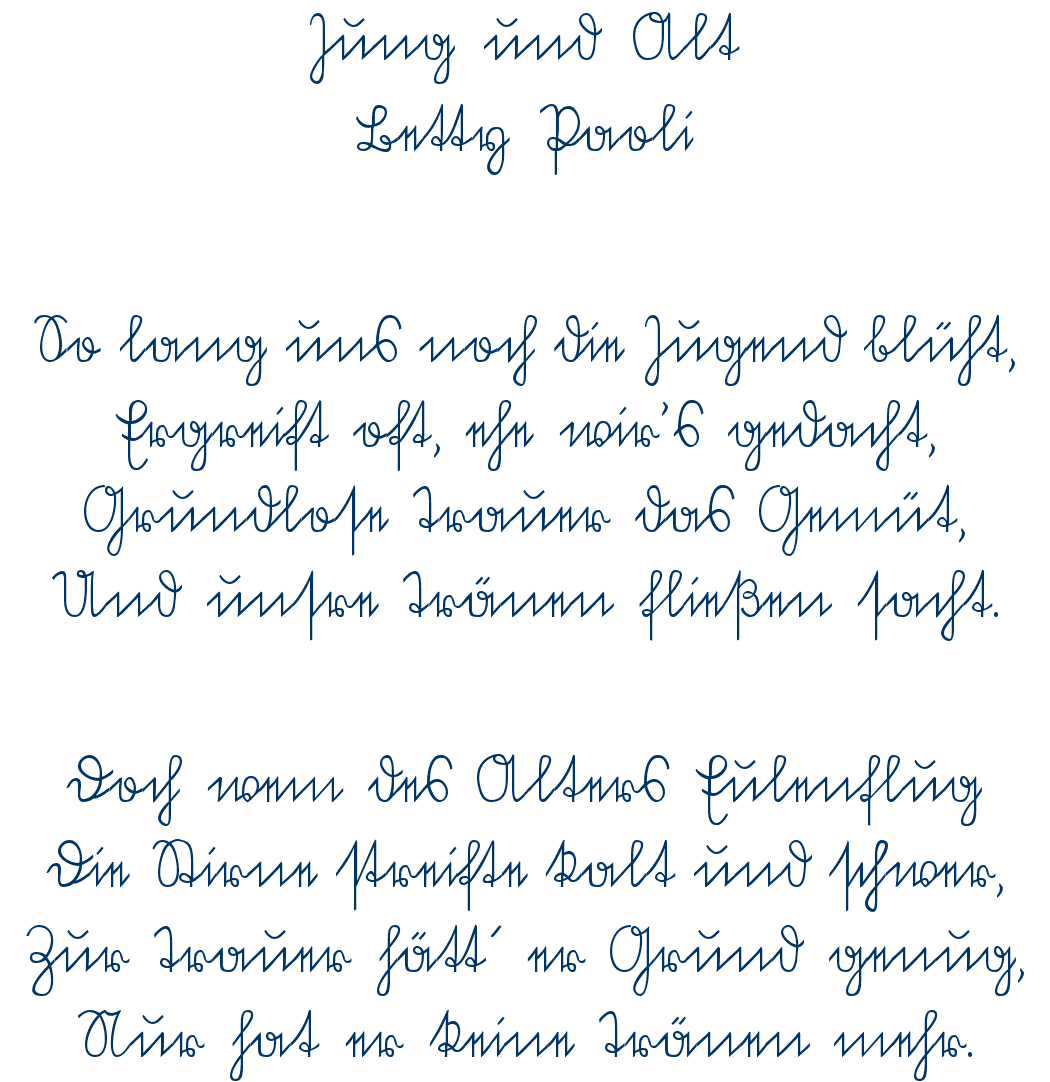 Jung und Alt
Betty Paoli
So lang uns noch die Jugend blüht,
Ergreift oft, ehe wir's gedacht,
Grundlose Trauer das Gemüt,
Und unsre Tränen fließen sacht.
Doch wem des Alters Eulenflug
Die Stirne streifte kalt und schwer,
Zur Trauer hätt´ er Grund genug,
Nur hat er keine Tränen mehr.